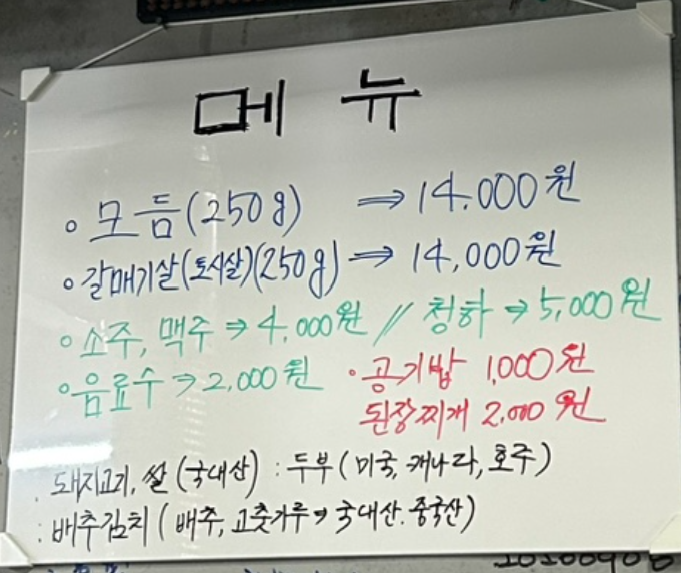 메뉴
• 모듬(250g) ⇒ 14.000원
• 갈매기살(토시살)(250g) ⇒ 14,000원
• 소주, 맥주 ⇒ 4.000원 // 청하 ⇒ 5,000원
• 음료수 ⇒ 2,000원 • 공기밥 1,000원
된장찌개 2,000원
. 돼지고기, 쌀 (국내산) : 두부 (미국, 캐나다, 호주)
: 배추김치 (배추, 고춧가루 ⇒ 국내산. 중국산)